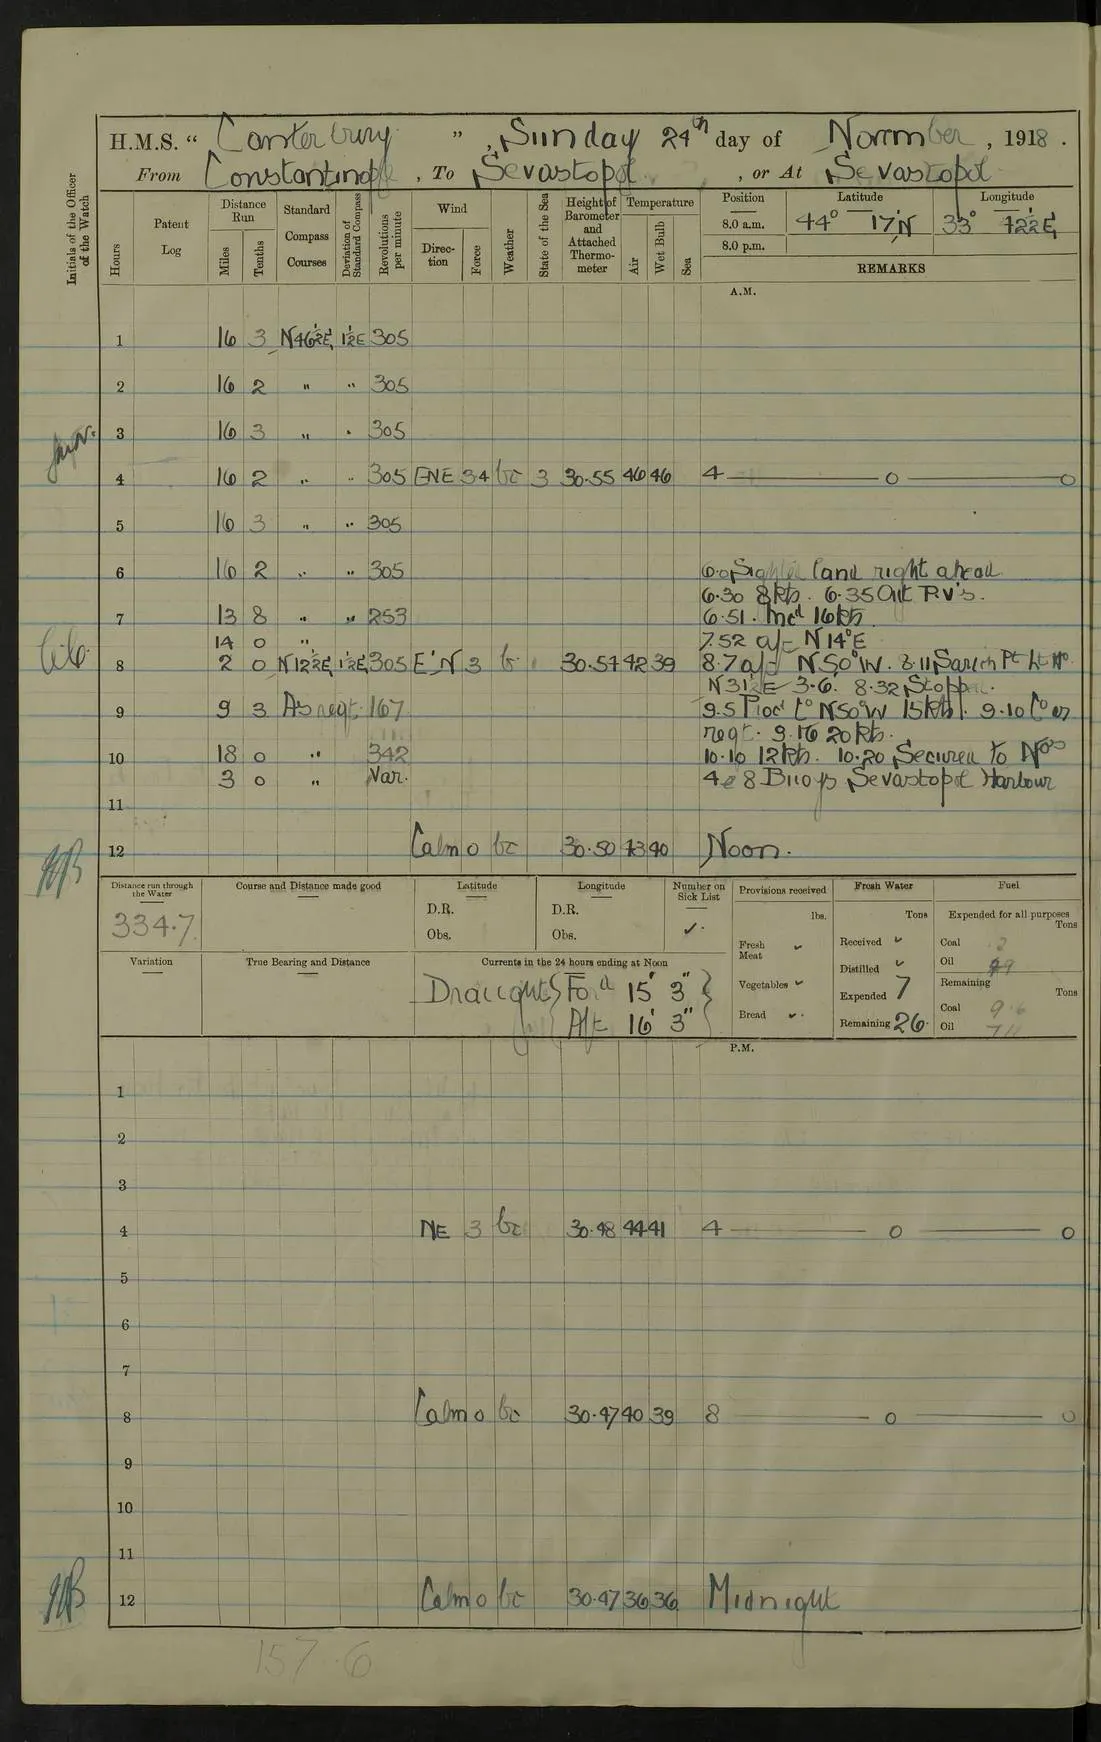 H.M.S. “ Canterbury ” , Sunday 24th day of November , 1918 .
From Constantinople , To Sevastopol , or At Sevastopol
Initials of the Officer of the Watch
Hours
Patent Log
Distance Run
Miles
Tenths
Standard Compass Courses
Deviation of Standard Compass
Revolutions per minute
Wind
Direction
Force
Weather
State of the Sea
Height of Barometer and Attached Thermometer
Temperature
Air
Wet Bulb
Sea
Position
Latitude
Longitude
8.0 a.m. 44° 17'N 33°
8.0 p.m.
REMARKS
A.M.
1 16 3 N46½E 1½E 305
2 16 2 " " 305
3 16 3 " " 305
4 16 2 " " 305 ENE 34 bc 3 30.55 46 46 4 — o — o
5 16 3 " " 305
6 16 2 " " 305 6.0 Sighted land right ahead
6.30 8 kts. 6.35 Out P.V's.
7 13 8 " " 253 6.51. Incd 16 kts
14 0 " 7.52 a/c N14°E
8 2 0 N12½E 1½E 305 E'N 3 b 30.54 42 39 8.7 a/c N50°W. 8.11 Sarich Pt Lt Ho
N31½E 3.6. 8.32 Stopped.
9 9 3 As reqt. 167 9.5 Procd Co N50°W 15 kts. 9.10 Co as
reqt. 9.16 20 kts.
10 18 0 " 342 10.10 12 kts. 10.20 Secured to Nos
3 0 " Var. 4 & 8 Buoys Sevastopol Harbour
11
12 Calm 0 bc 30.50 43 40 Noon.
Distance run through the Water
334.7
Course and Distance made good
Latitude
D.R.
Obs.
Longitude
D.R.
Obs.
Number on Sick List
✓.
Provisions received
lbs.
Fresh Meat ✓
Vegetables ✓
Bread ✓
Fresh Water
Tons
Received ✓
Distilled ✓
Expended 7
Remaining 26.
Fuel
Expended for all purposes
Tons
Coal .2
Oil
Remaining
Tons
Coal 9.6
Oil
Variation
True Bearing and Distance
Currents in the 24 hours ending at Noon
Draught { Ford 15' 3" }
Aft 16' 3"
P.M.
1
2
3
4 NE 3 bc 30.48 44 41 4 — o — o
5
6
7
8 Calm 0 bc 30.47 40 39 8 — o — o
9
10
11
12 Calm 0 bc 30.47 36 36 Midnight
157.6